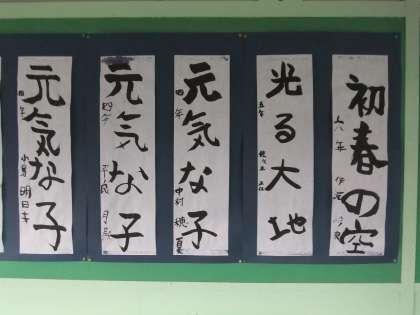 初春の空
六年
光る大地
五年
元気な子
四年
中村 穂夏
元気な子
四年
元気な子
四年
小島 明日幸